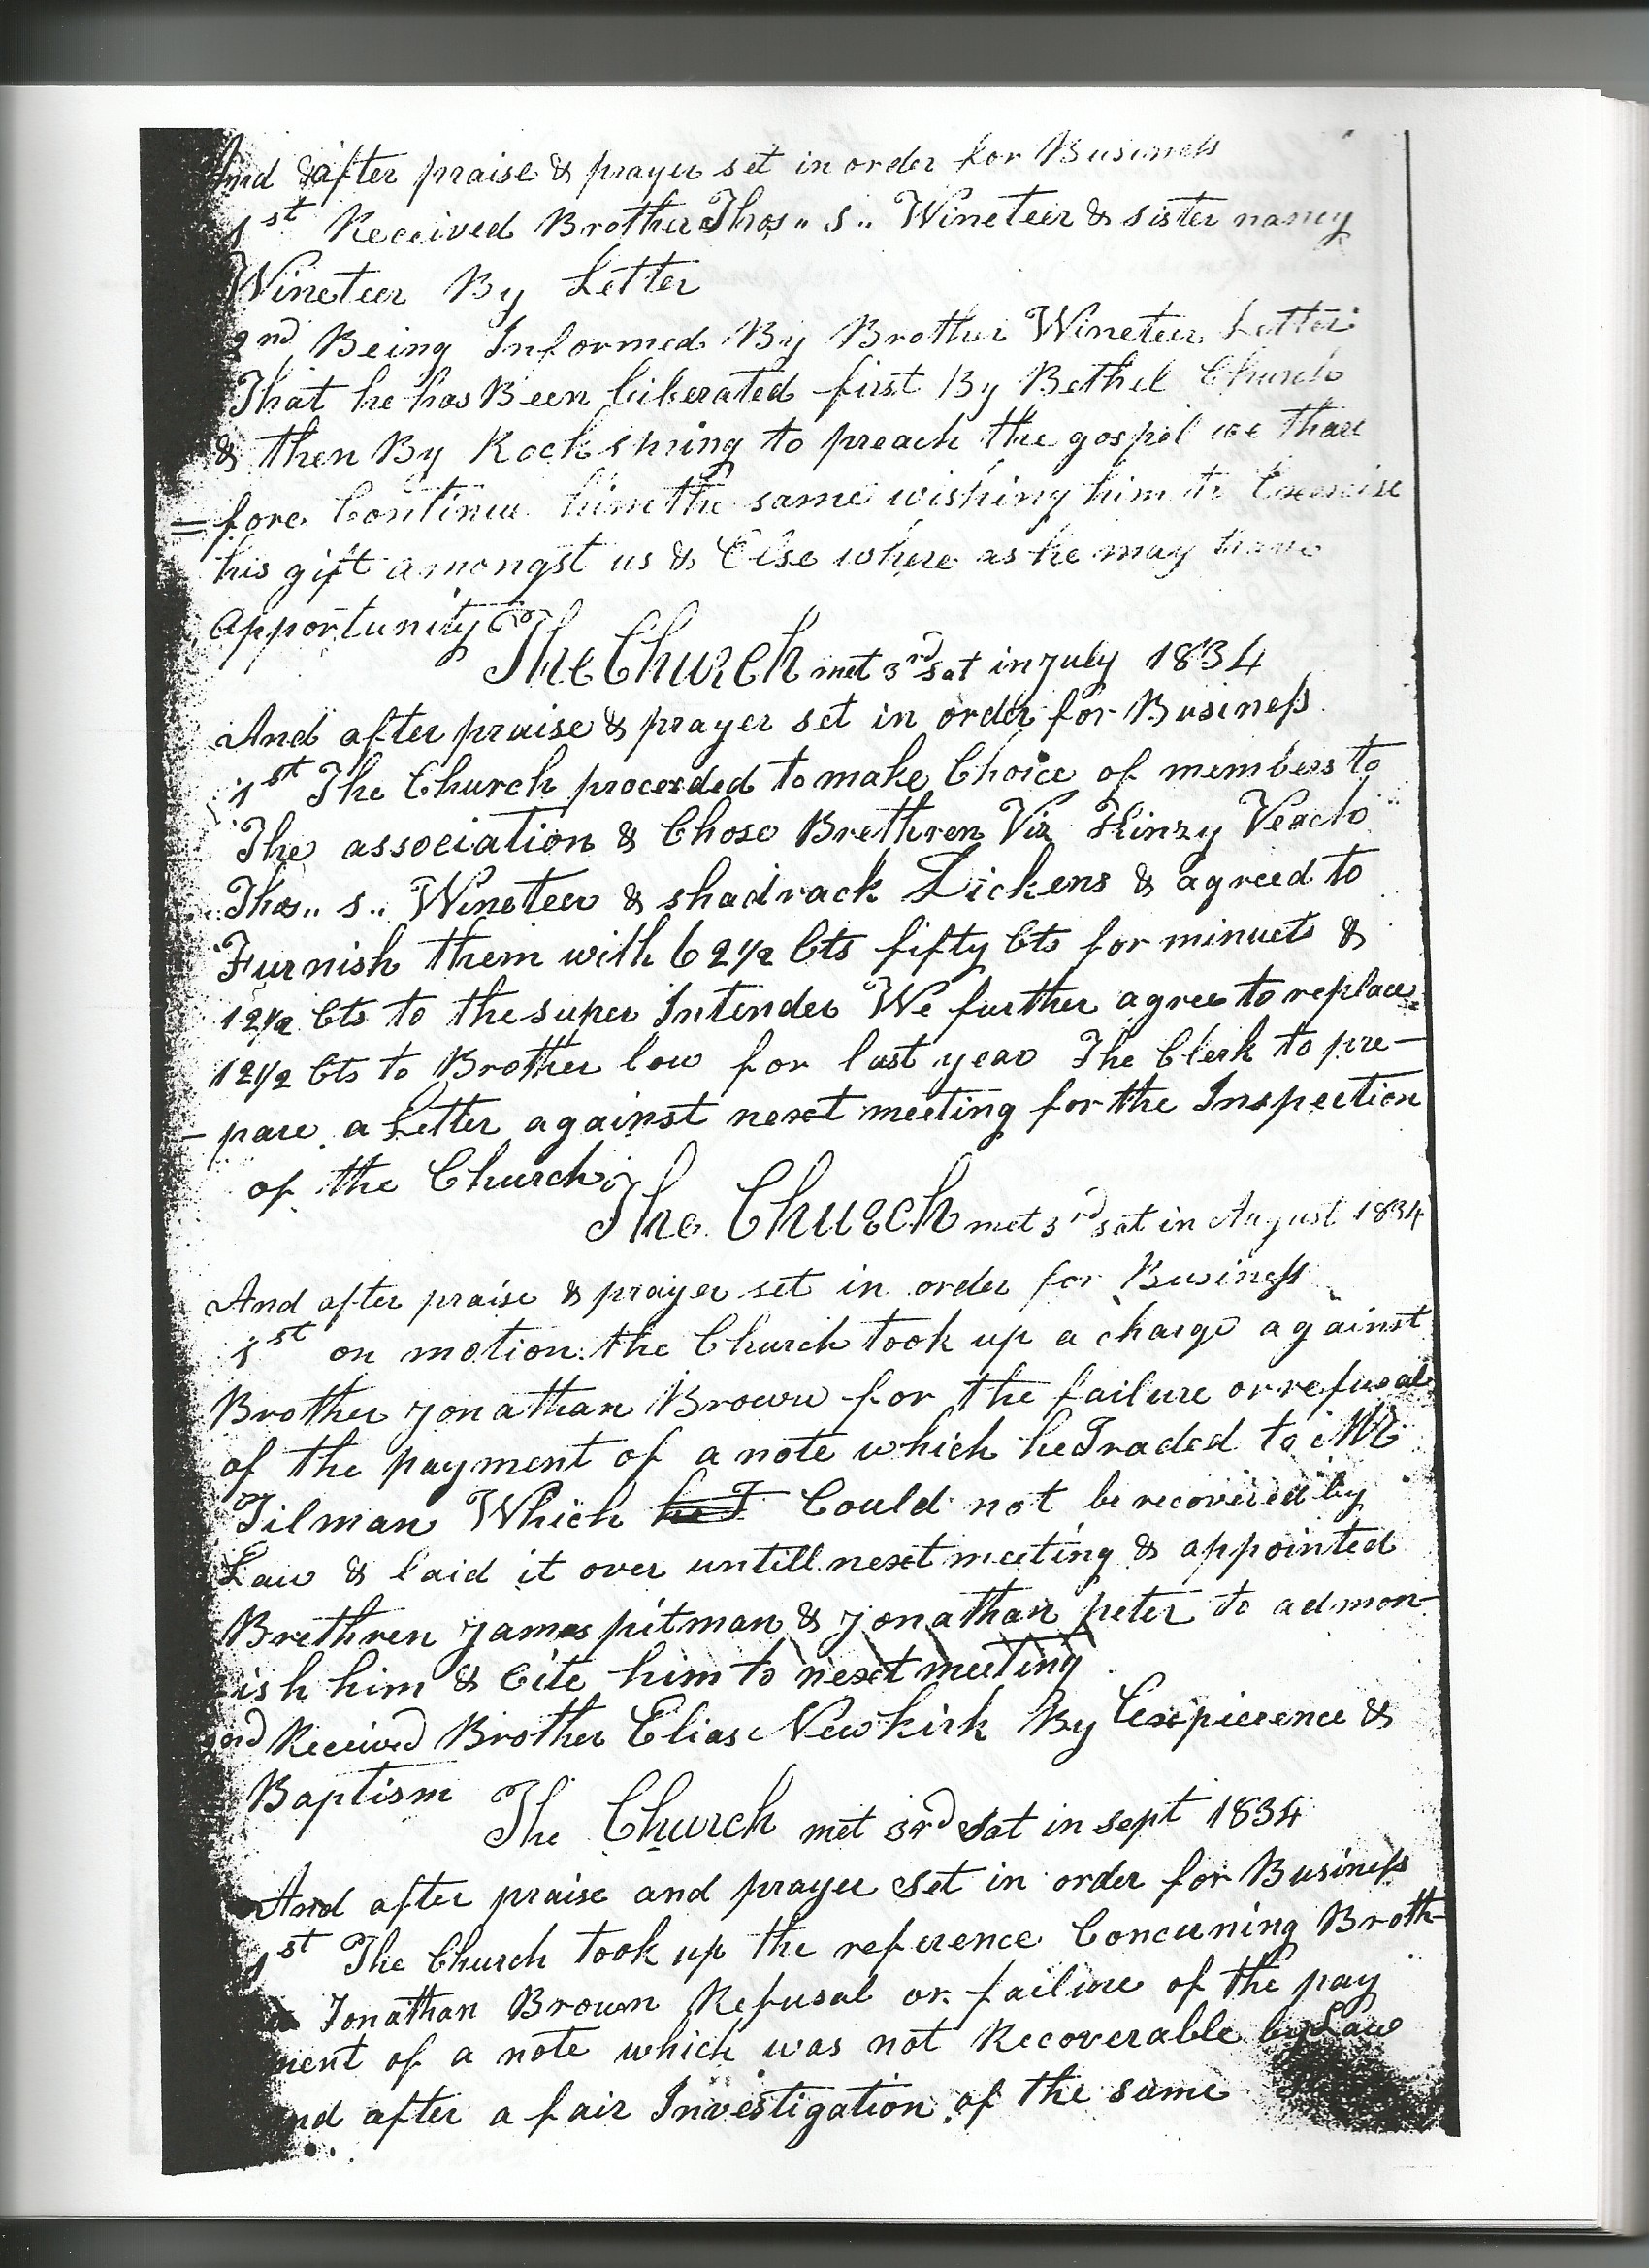 And & after praise & prayer set in order for Business
1st Received Brother Thos.. S.. Wineteer & sister nancy
Wineteer By Letter
2nd Being Informed By Brother Wineteer Letter
That he has Been liberated first By Bethel Church
& then By Rock spring to preach the gospel we thare
= fore Continue him the same wishing him to Exercise
his gift amongst us & Else where as he may have
opportunity
The Church met 3rd sat in July 1834
And after praise & prayer set in order for Business
1st The Church proceeded to make Choice of members to
The association & Chose Brethren Viz Kinzy Veach
Thos.. s.. Wineteer & shadrack Dickens & agreed to
Furnish them with 62 1/2 Cts fifty Cts for minuets &
12 1/2 Cts to the super Intender We further agree to replace
12 1/2 Cts to Brother low for last year The Clerk to pre-
- pare a Letter against next meeting for the Inspection
of the Church
The Church met 3rd sat in August 1834
And after praise & prayer set in order for Business
1st on motion the Church took up a charge against
Brother Jonathan Brown for the failure or refusal
of the payment of a note which he Traded to Mr
Tilman Which Could not be recovered by
Law & laid it over untill next meeting & appointed
Brethren James pitman & Jonathan peter to admon-
ish him & Cite him to next meeting
2nd Received Brother Elias Newkirk By Expierence &
Baptism
The Church met 3rd Sat in sept 1834
And after praise and prayer set in order for Business
1st The Church took up the reference Concerning Broth-
Jonathan Brown Refusal or failure of the pay
ment of a note which was not Recoverable by Law
and after a fair Investigation of the same